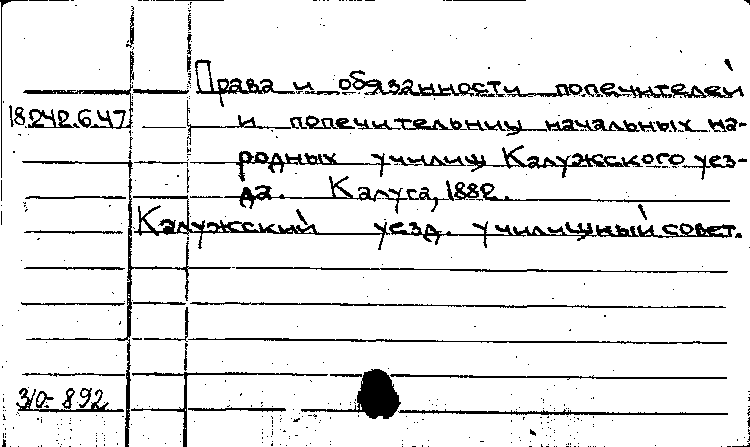 Права и обязанности попечителей
18.242.6.47
и попечительниц начальных на-
родных училищ Калужского уез-
да. Калуга, 1882.
Калужский уезд. училищный совет.
310-892